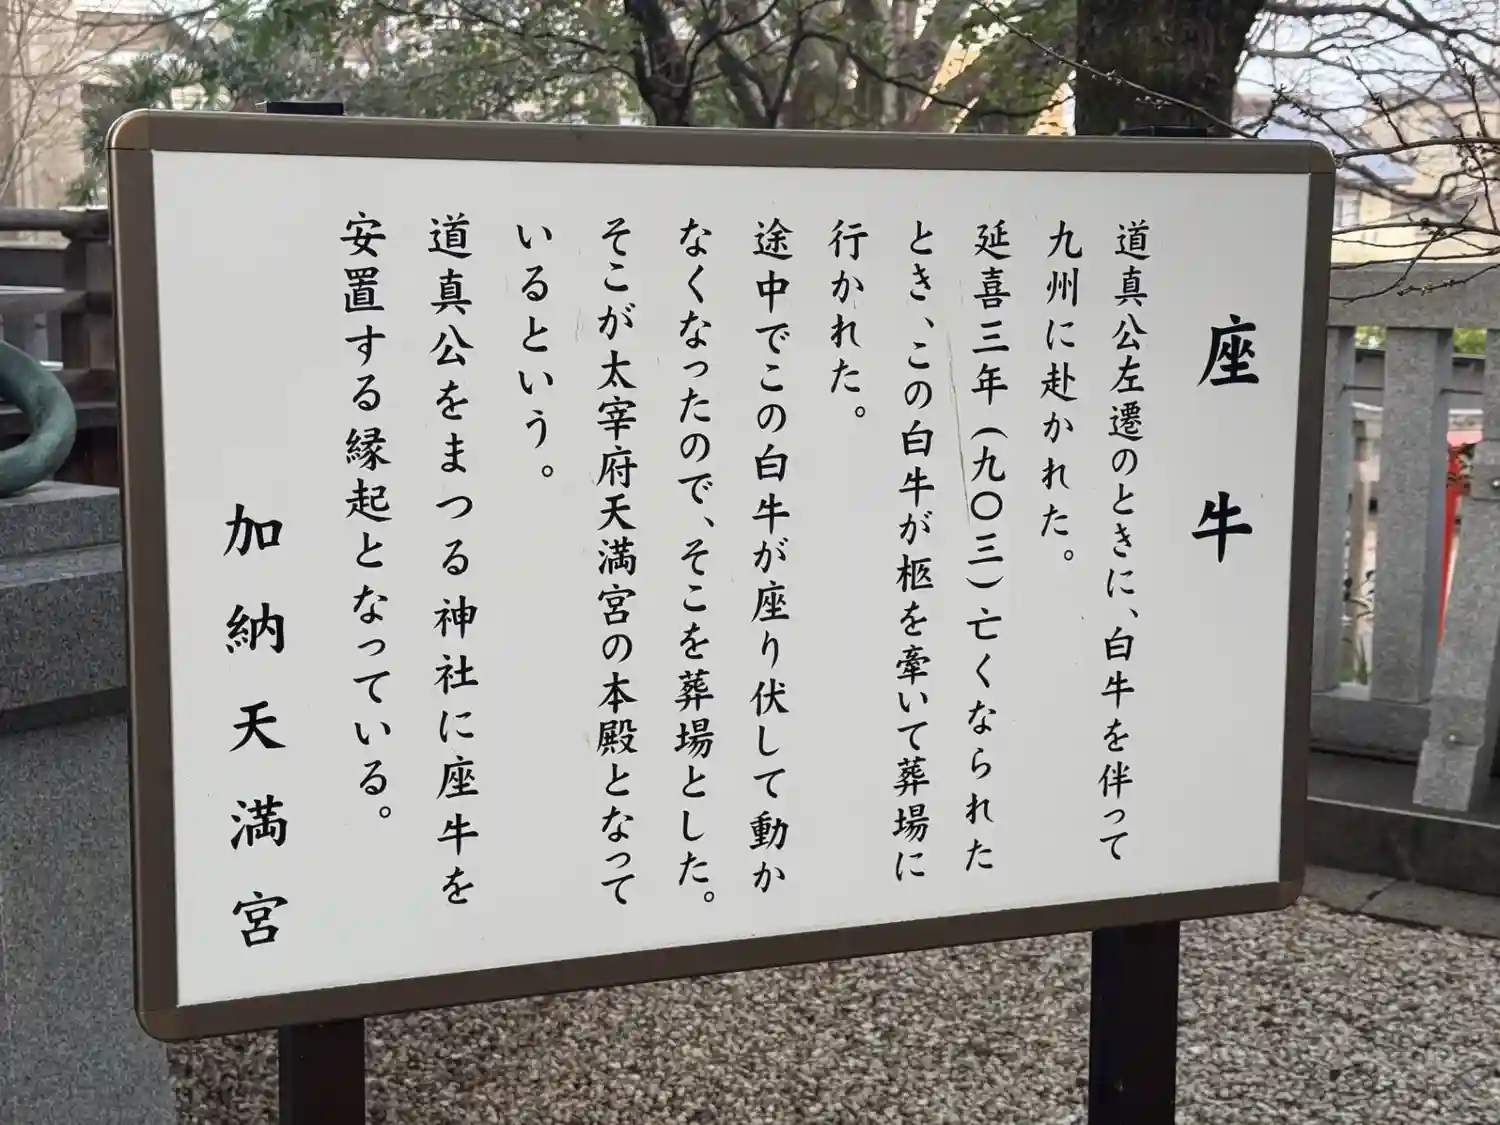 座牛
道真公左遷のときに、白牛を伴って
九州に赴かれた。
延喜三年(九〇三)亡くなられた
とき、この白牛が柩を牽いて葬場に
行かれた。
途中でこの白牛が座り伏して動か
なくなったので、そこを葬場とした。
そこが太宰府天満宮の本殿となって
いるという。
道真公をまつる神社に座牛を
安置する縁起となっている。
加納天満宮